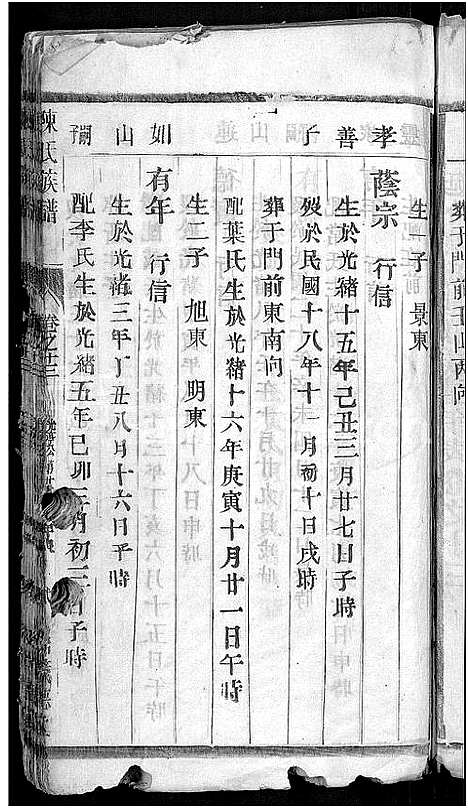 葬于門前玉山丙向
生一子 景東
孝 蔭宗 行信
善 生於光緒十五年己丑三月廿七日子時
子 歿於民國十八年十一月初十日戌時
葬于門前東南向
配葉氏生於光緒十六年庚寅十月廿一日午時
生二子 旭東 明東
如 有年 行信
山 生於光緒三年丁丑八月十六日子時
彌 配李氏生於光緒五年己卯 月初二日子時
陳氏族譜 卷之十三